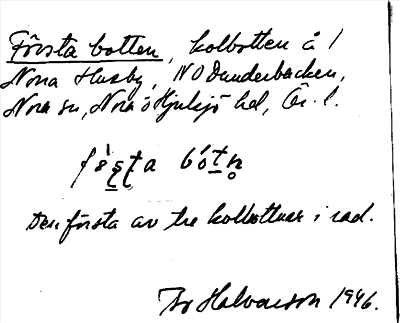 Första botten, kolbotten å 1
Nora Husby, NO Dunderbacken,
Nora sn, Nora o Hjulsjö hd, Ör. l.
bót̠n̥
Den första av tre kolbottnar i rad.
Halvarson 1946.